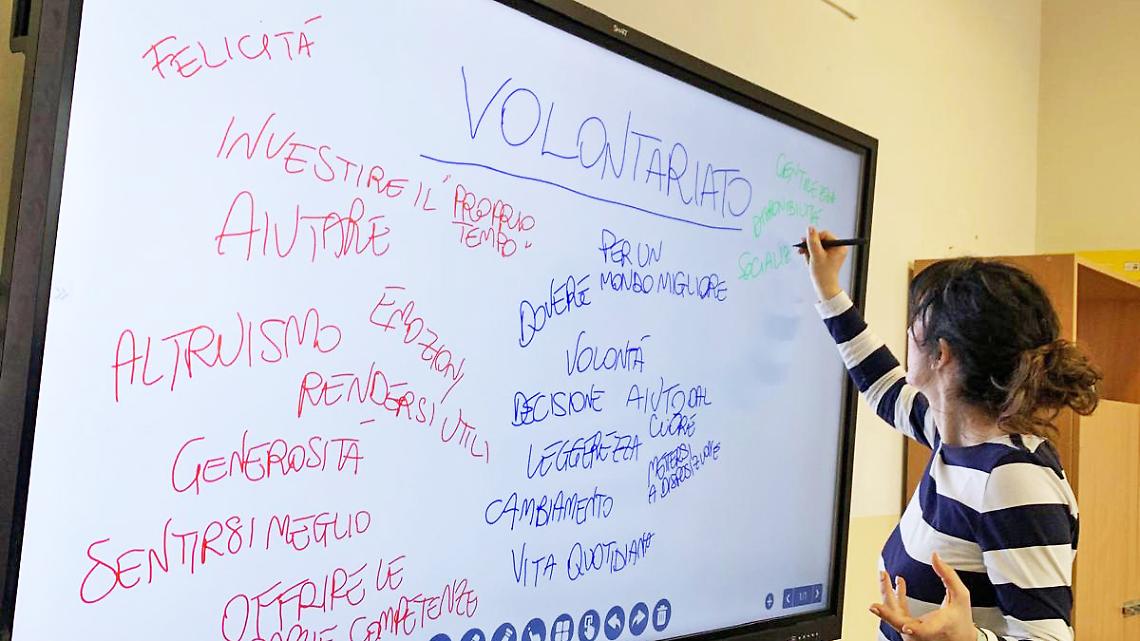 SMART
VOLONTARIATO
FELICITÁ
INVESTIRE IL "PROPRIO
TEMPO"
AIUTARE
ALTRUISMO
EMOZIONI
RENDERSI UTILI
GENEROSITÁ
SENTIRSI MEGLIO
OFFRIRE LE
COMPETENZE
PER UN
MONDO MIGLIORE
DOVERE
VOLONTÁ
DECISIONE
AIUTO DAL
CUORE
LEGGEREZZA
METTERSI
A DISPOSIZIONE
CAMBIAMENTO
VITA QUOTIDIANA
GENTILEZZA
DISPONIBILITÁ
1/1